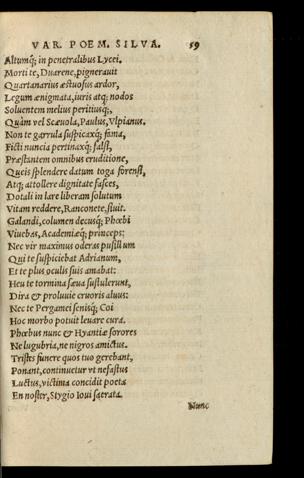 VAR. POEM. SILVA. 59
Altumq́; in penetralibus Lycei.
Morti te, Duarene, pignerauit
Quartanarius æstuosus ardor,
Legum ænigmata, iuris atq; nodos
Soluentem melius peritiusq́;,
Quàm vel Scæuola, Paulus, Vlpianus.
Non te garrula suspicaxq́; fama,
Ficti nuncia pertinaxq́; falsi,
Præstantem omnibus eruditione,
Queis splendere datum toga forensi,
Atq; attollere dignitate fasces,
Dotali in lare liberam solutum
Vitam reddere, Ranconete, siuit.
Galandi, columen decusq́; Phœbi
Viuebas, Academiæq́; princeps:
Nec vir maximus oderas pusillum
Qui te suspiciebat Adrianum,
Et te plus oculis suis amabat:
Heu te tormina sæua sustulerunt,
Dira & proluuie cruoris aluus:
Nec te Pergamei senisq́; Coi
Hoc morbo potuit leuare cura.
Phœbus nunc & Hyantiæ sorores
Ne lugubria, ne nigros amictus,
Tristes funere quos tuo gerebant,
Ponant, continuetur vt nefastus
Luctus, victima concidit poeta
En noster, Stygio Ioui sacrata.
Nunc